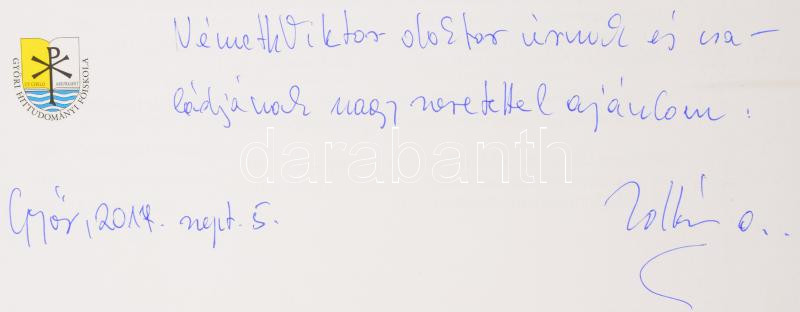 Németh Viktor doktor úrnak és csa-
ládjának nagy szeretettel ajánlom:
GYŐRI HITTUDOMÁNYI FŐISKOLA
darabanth
Győr, 2017. szept. 5.
Zoltán a..